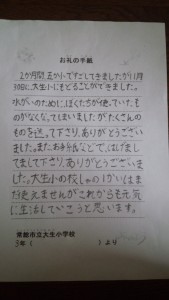 お礼の手紙
2か月間、五か小ですごしてきましたが11月
30日に、大生小にもどることができました。
水がいのために、ぼくたちが使っていた
ものがなくなってしまいましたがたくさんの
ものを送って下さり、ありがとうござい
ました。またお手紙などで、はげまし
てまして下さり、ありがとうございま
した。大生小の校しゃの1かいはま
だ使えませんがこれからも元気
に生活していこうと思います。
常総市立大生小学校
3年
より